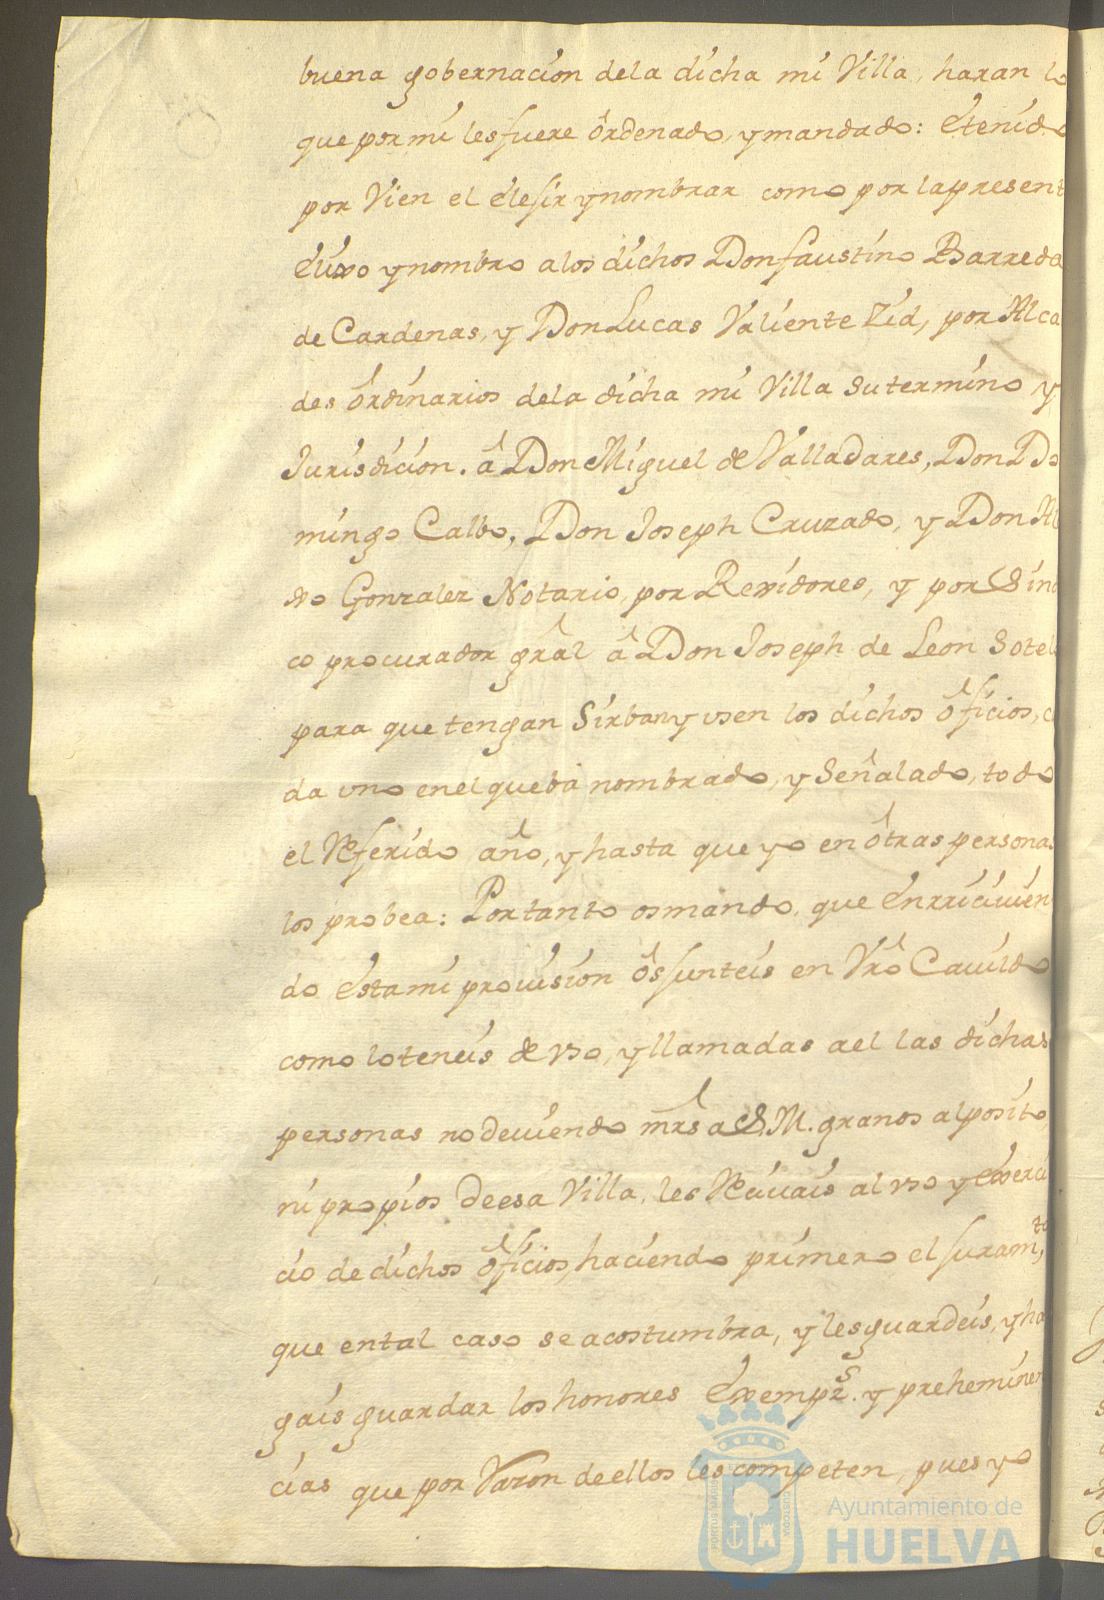 buena gobernacion dela dicha mi Villa, haran lo
que por mi les fuere ôrdenado, y mandado: é tenido
por Vien el elesir y nombrar como por la present
elixo y nombro a los dichos Don faustino Barreda
de Cardenas, y Don Lucas Valiente Zid, por Alca
des ordinarios dela dicha mi Villa su termino y
Jurisdicion. â Don Miguel de Valladares, Don Do
mingo Calbo, Don Joseph Cruzado, y Don Al
Gonzalez Notario, por Rexidores, y por Sindi
co procurador grâl â Don Joseph de Leon Sotel
para que tengan Sirban y vsen los dichos ôficios, c
da vno en el que bá nombrado, y Señalado, todo
el Referido año, y hasta que yo en ôtras personas
los probea: Por tanto os mando, que en rriciuien
do esta mi prouision ôs junteis en Vrô Cauildo
como lo teneis de vso, y llamadas a el las dichas
personas no deuiendo mrs a S. M. granos al posito
ni propios de esa Villa, les Reciuais al vso y exerci
cio de dichos ôficios, haciendo primero el juramto,
que en tal caso se acostumbra, y les guardeis, y ha
gais guardar los honores Exempzs. y preheminen
cias que por Razon de ellos les competen, pues yo
PORTUS MARIS
CUSTODIA
Ayuntamiento de
HUELVA